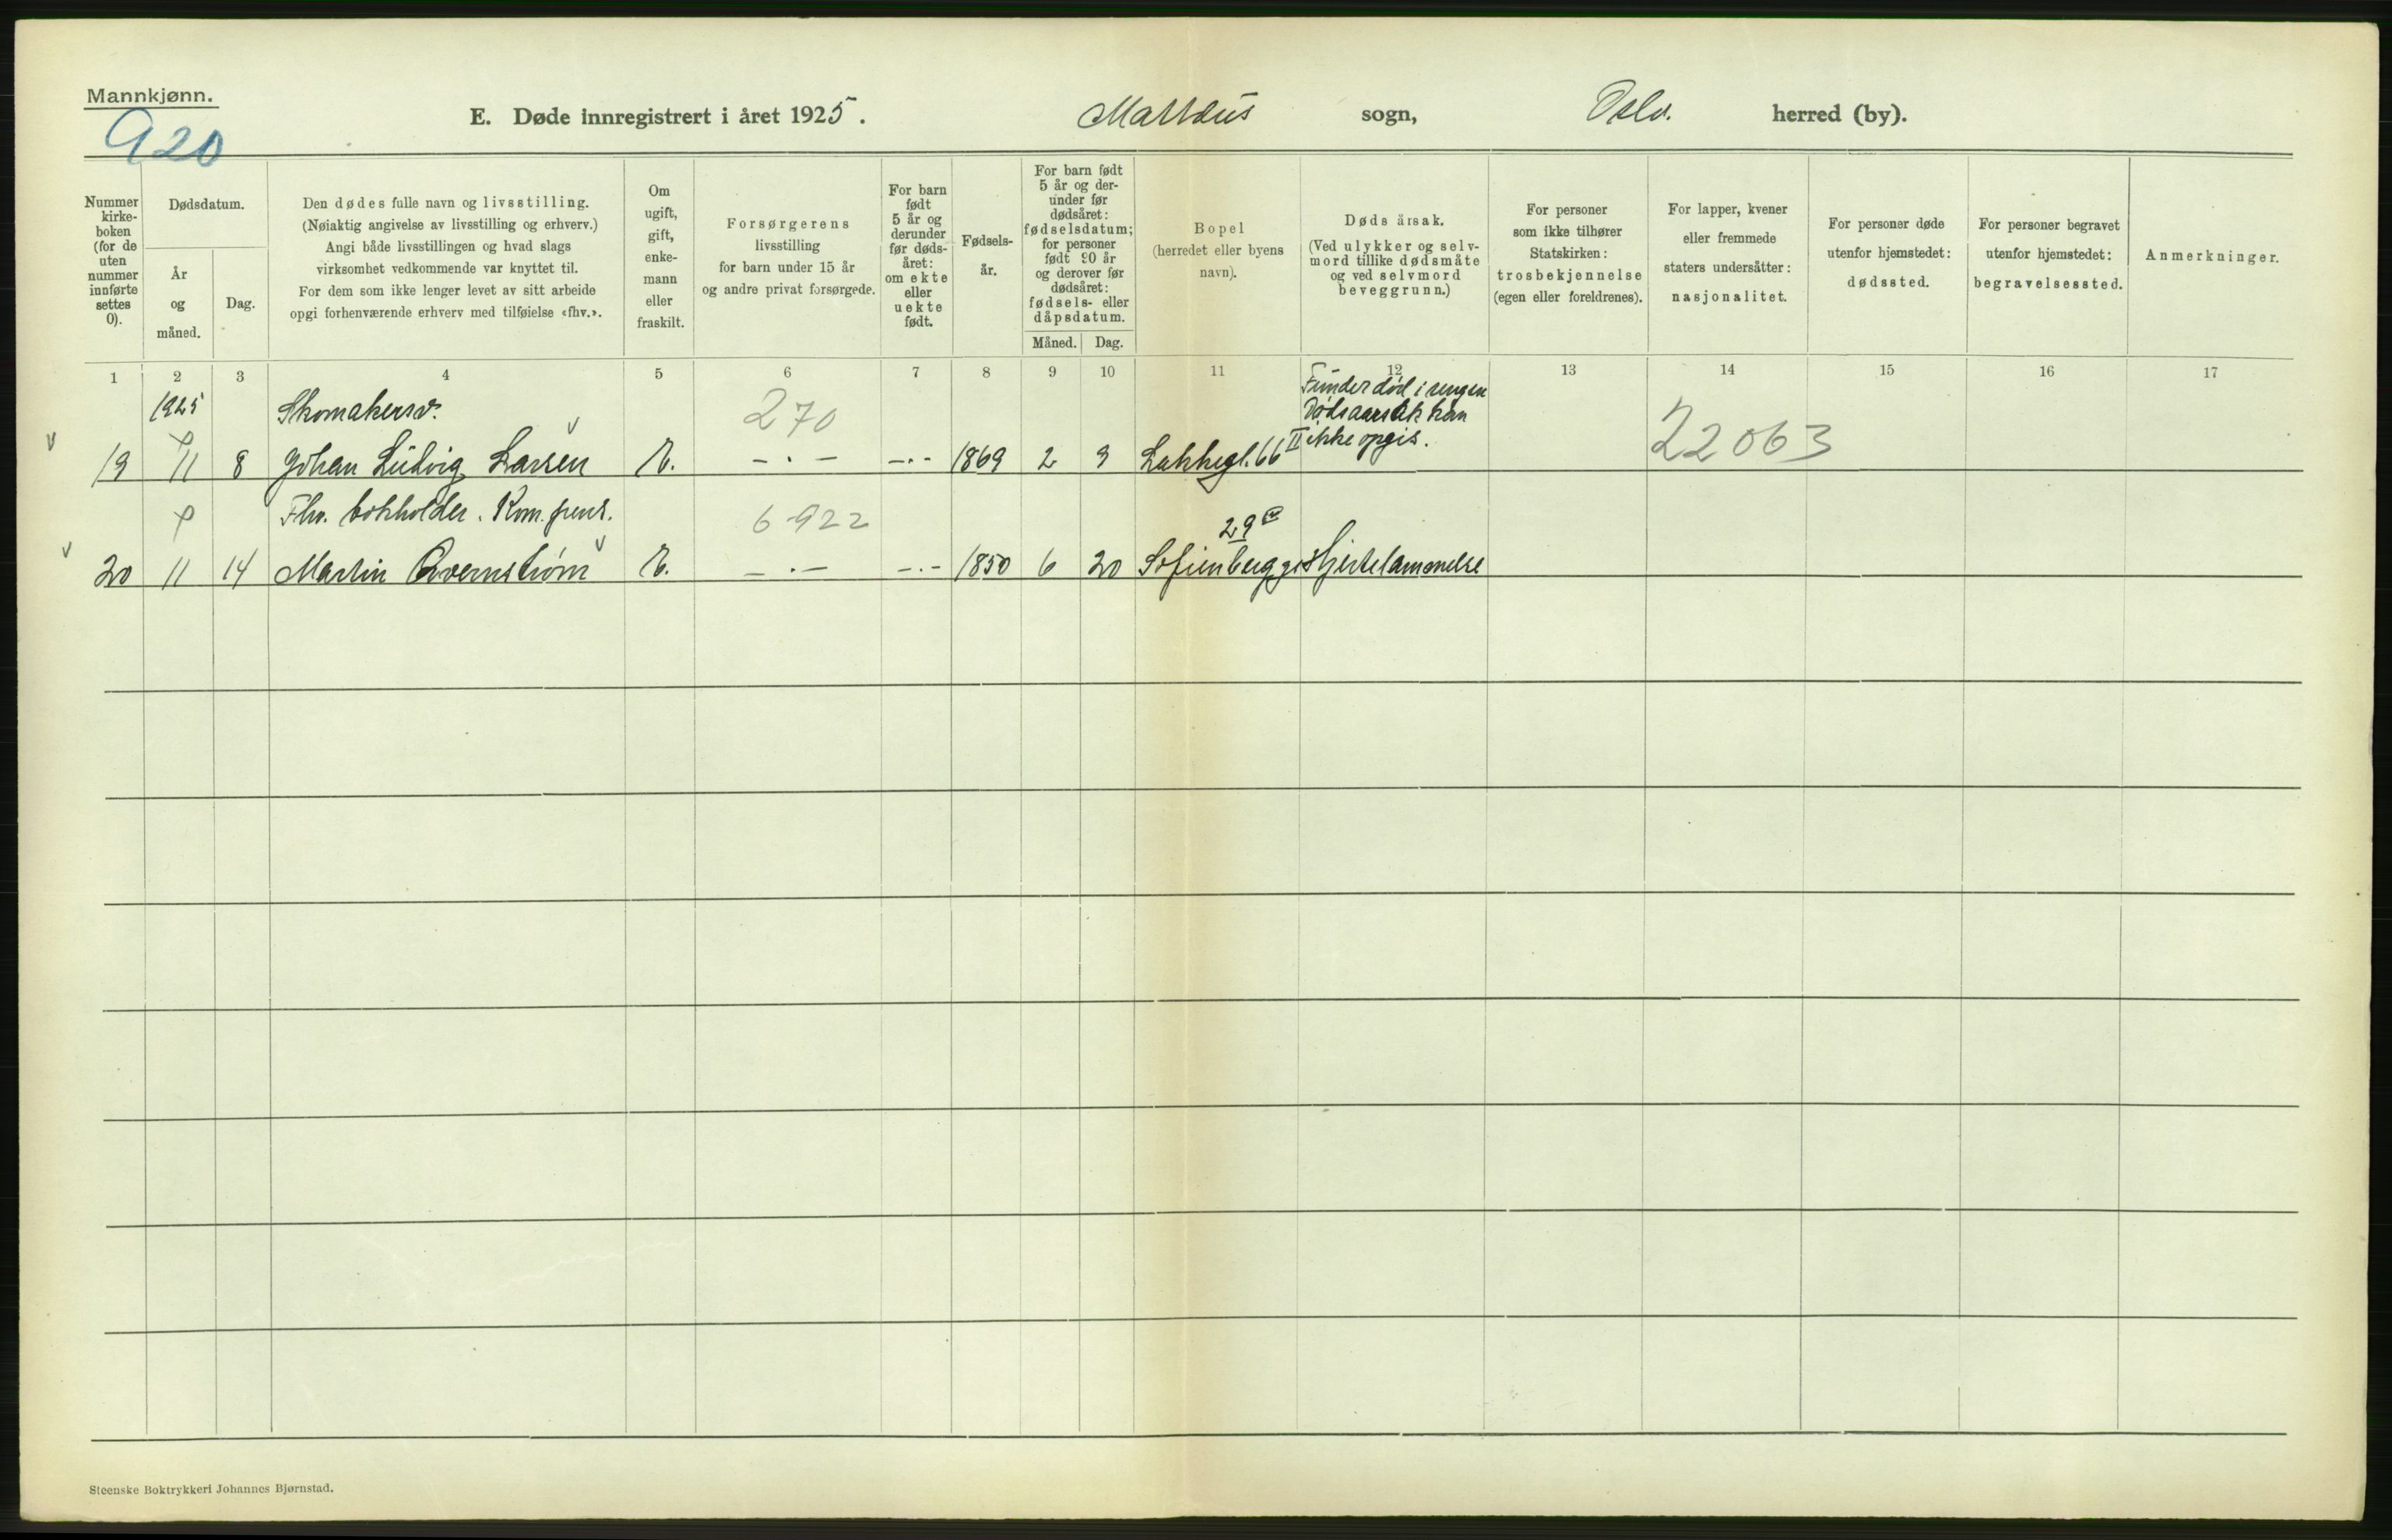 Mannkjønn.
920
E. Døde innregistrert i året 1925. Mattæus sogn, Oslo. herred (by).
Nummer kirke-boken (for de uten nummer innførte settes 0).
Dødsdatum.
År og måned.
Dag.
Den dødes fulle navn og livsstilling.
(Nøiaktig angivelse av livsstilling og erhverv.)
Angi både livsstillingen og hvad slags
virksomhet vedkommende var knyttet til.
For dem som ikke lenger levet av sitt arbeide
opgi forhenværende erhverv med tilføielse «fhv.».
Om ugift, gift, enke-mann eller fraskilt.
Forsørgerens
livsstilling
for barn under 15 år
og andre privat forsørgede.
For barn født 5 år og derunder før døds-året: om ekte eller uekte født.
Fødsels-år.
For barn født 5 år og der-under før dødsåret: fødselsdatum; for personer født 90 år og derover før dødsåret: fødsels- eller dåpsdatum.
Måned. Dag.
Bopel
(herredet eller byens
navn).
Døds årsak.
(Ved ulykker og selv-
mord tillike dødsmåte
og ved selvmord
beveggrunn.)
For personer
som ikke tilhører
Statskirken:
trosbekjennelse
(egen eller foreldrenes).
For lapper, kvener
eller fremmede
staters undersåtter:
nasjonalitet.
For personer døde
utenfor hjemstedet:
dødssted.
For personer begravet
utenfor hjemstedet:
begravelsessted.
Anmerkninger.
1 2 3 4 5 6 7 8 9 10 11 12 13 14 15 16 17
1925 Skomakersv. 270 Funder død i sengen
Dødsaarsak kan
ikke opgis. 22063
19 11 8 Johan Ludvig Larsen - . - - . - 1869 2 9 Lakkegt. 66 II
Fhv. bokholder. Kom. pens. 6922
29
20 11 14 Martin Qvernstrøm - . - - . - 1850 6 20 Sofienberggt Hjertelammelse
Steenske Boktrykkeri Johannes Bjørnstad.